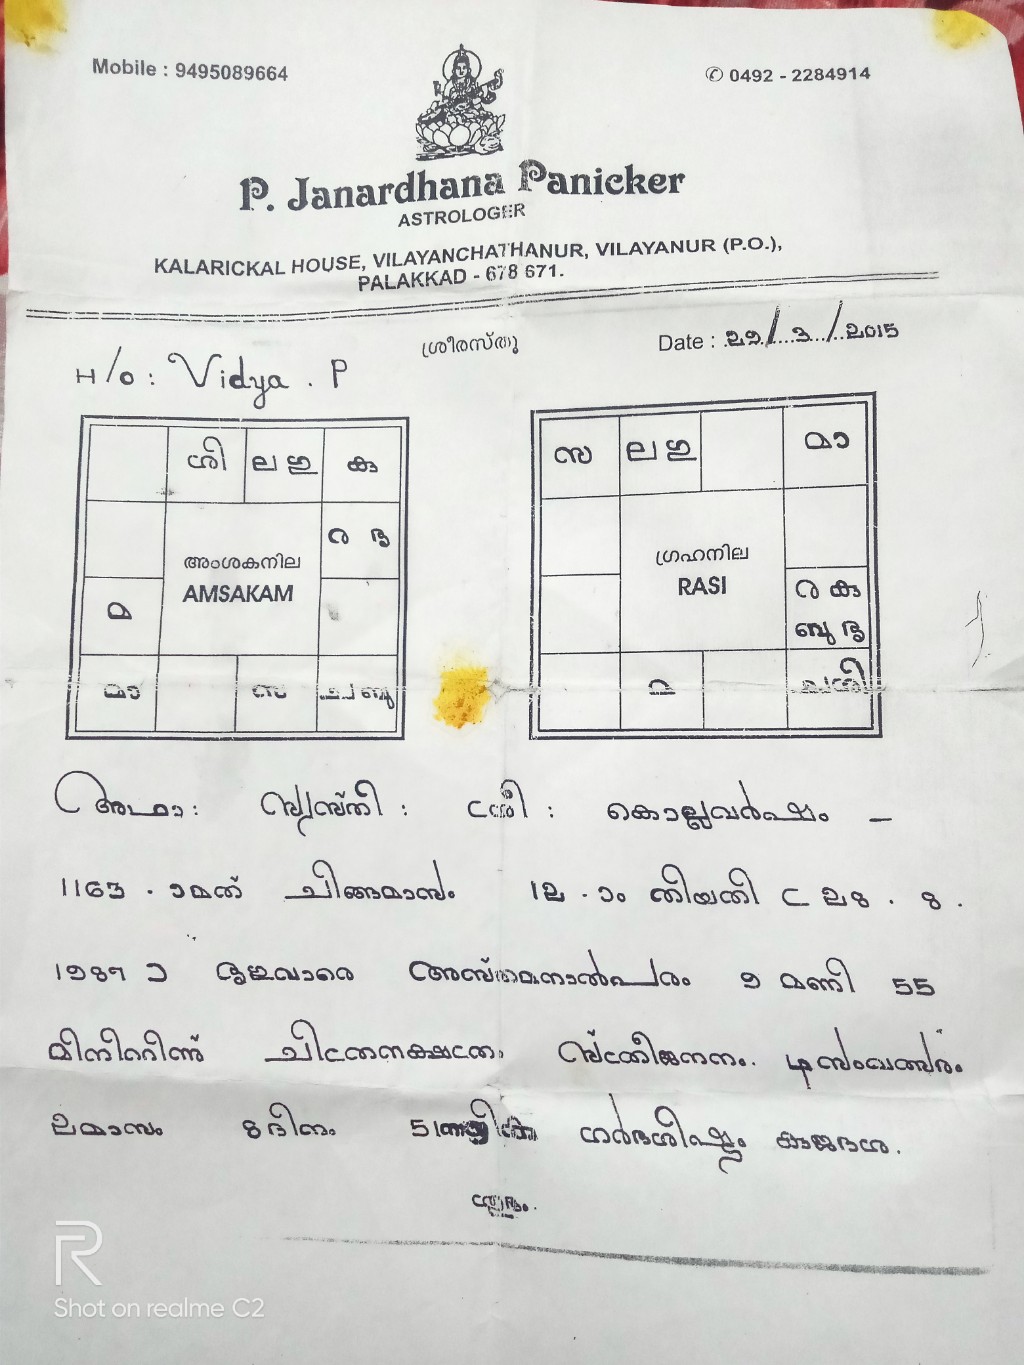 Mobile : 9495089664
✆ 0492 - 2284914
P. Janardhana Panicker
ASTROLOGER
KALARICKAL HOUSE, VILAYANCHATHANUR, VILAYANUR (P.O.),
PALAKKAD - 678 671.
ശ്രീരസ്തു
Date : 29/3/2015
H/o : Vidya . P
ശി ല ഇ കു
ര ഭൃ
അംശകനില
AMSAKAM
മ
മാ സ ച ബു
സ ല ഇ മാ
ഗ്രഹനില
RASI
ര കു
ബു ഭൃ
മ ച ശി
സ്വസ്തി : ശ്രീ : കൊല്ലവർഷം –
1163 - ാമത് ചിങ്ങമാസം 12 - ാം തിയതി ( 28 . 8 .
1987 ) അസ്തമനാൽപരം 9 മണി 55
മിനിററിന്ന് ചിത്രനക്ഷത്രം സ്ത്രീജനനം.
2മാസം 8ദിനം 51 ഗർഭശിഷ്ടം കുജദശ.